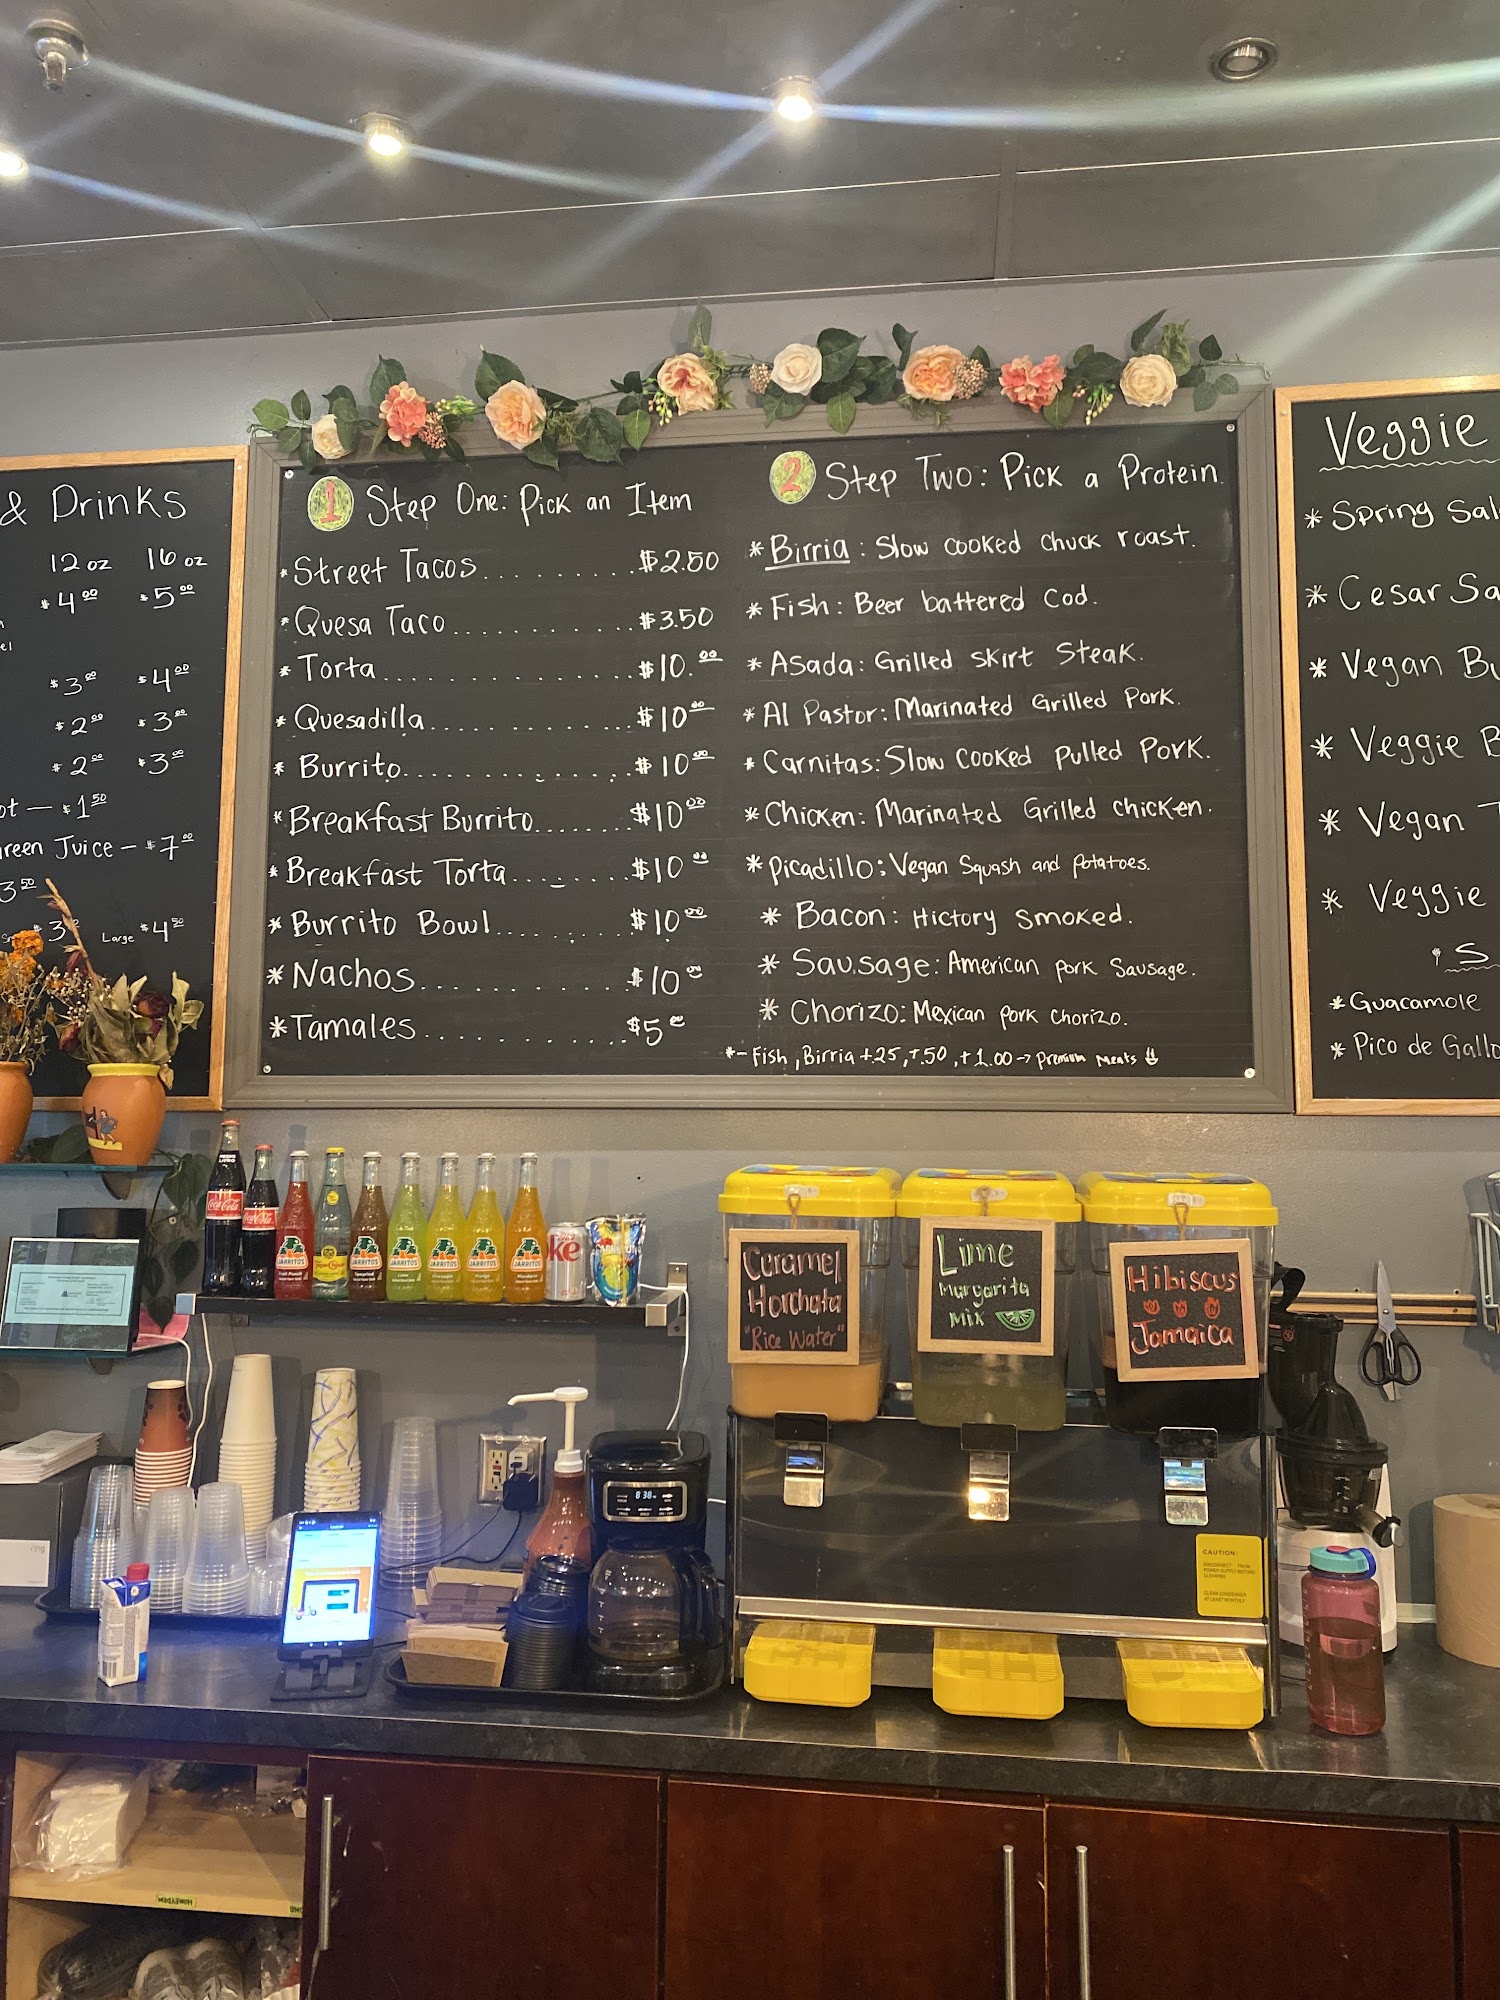 & Drinks
12 oz 16 oz
$4.00 $5.00
$3.00 $4.00
$2.00 $3.00
$2.00 $3.00
$1.50
Juice - $7.00
3.50
Large $4.50
1 Step One: Pick an Item
*Street Tacos.........$2.50
*Quesa Taco...........$3.50
*Torta................$10.00
*Quesadilla...........$10.00
*Burrito..............$10.00
*Breakfast Burrito.......$10.00
*Breakfast Torta.........$10.00
*Burrito Bowl.........$10.00
*Nachos............$10.00
*Tamales...........$5.00
2 Step Two: Pick a Protein.
*Birria: Slow cooked chuck roast.
*Fish: Beer battered Cod.
*Asada: Grilled Skirt Steak.
*Al Pastor: Marinated Grilled Pork.
*Carnitas: Slow Cooked Pulled Pork.
*Chicken: Marinated Grilled chicken.
*Picadillo: Vegan Squash and potatoes.
*Bacon: Hictory Smoked.
*Sausage: American pork Sausage.
*Chorizo: Mexican pork chorizo.
*- Fish, Birria +.25, +.50, +1.00 → Premium Meats
Veggie
*Spring
*Cesar
*Vegan
*Veggie
*Vegan
*Veggie
*Guacamole
*Pico de Gallo
Coca-Cola
Coca-Cola
JARRITOS
Fruit Punch
JARRITOS
Tamarind
JARRITOS
Lime
JARRITOS
Pineapple
JARRITOS
Mango
JARRITOS
Mandarin
ke
Caramel
Horchata
"Rice Water"
Lime
Margarita
Mix
Hibiscus
Jamaica
8:38
ring
CAUTION:
DISCONNECT FROM
POWER SUPPLY BEFORE
CLEANING
CLEAN CONDENSER
AT LEAST MONTHLY
HONEYDEW